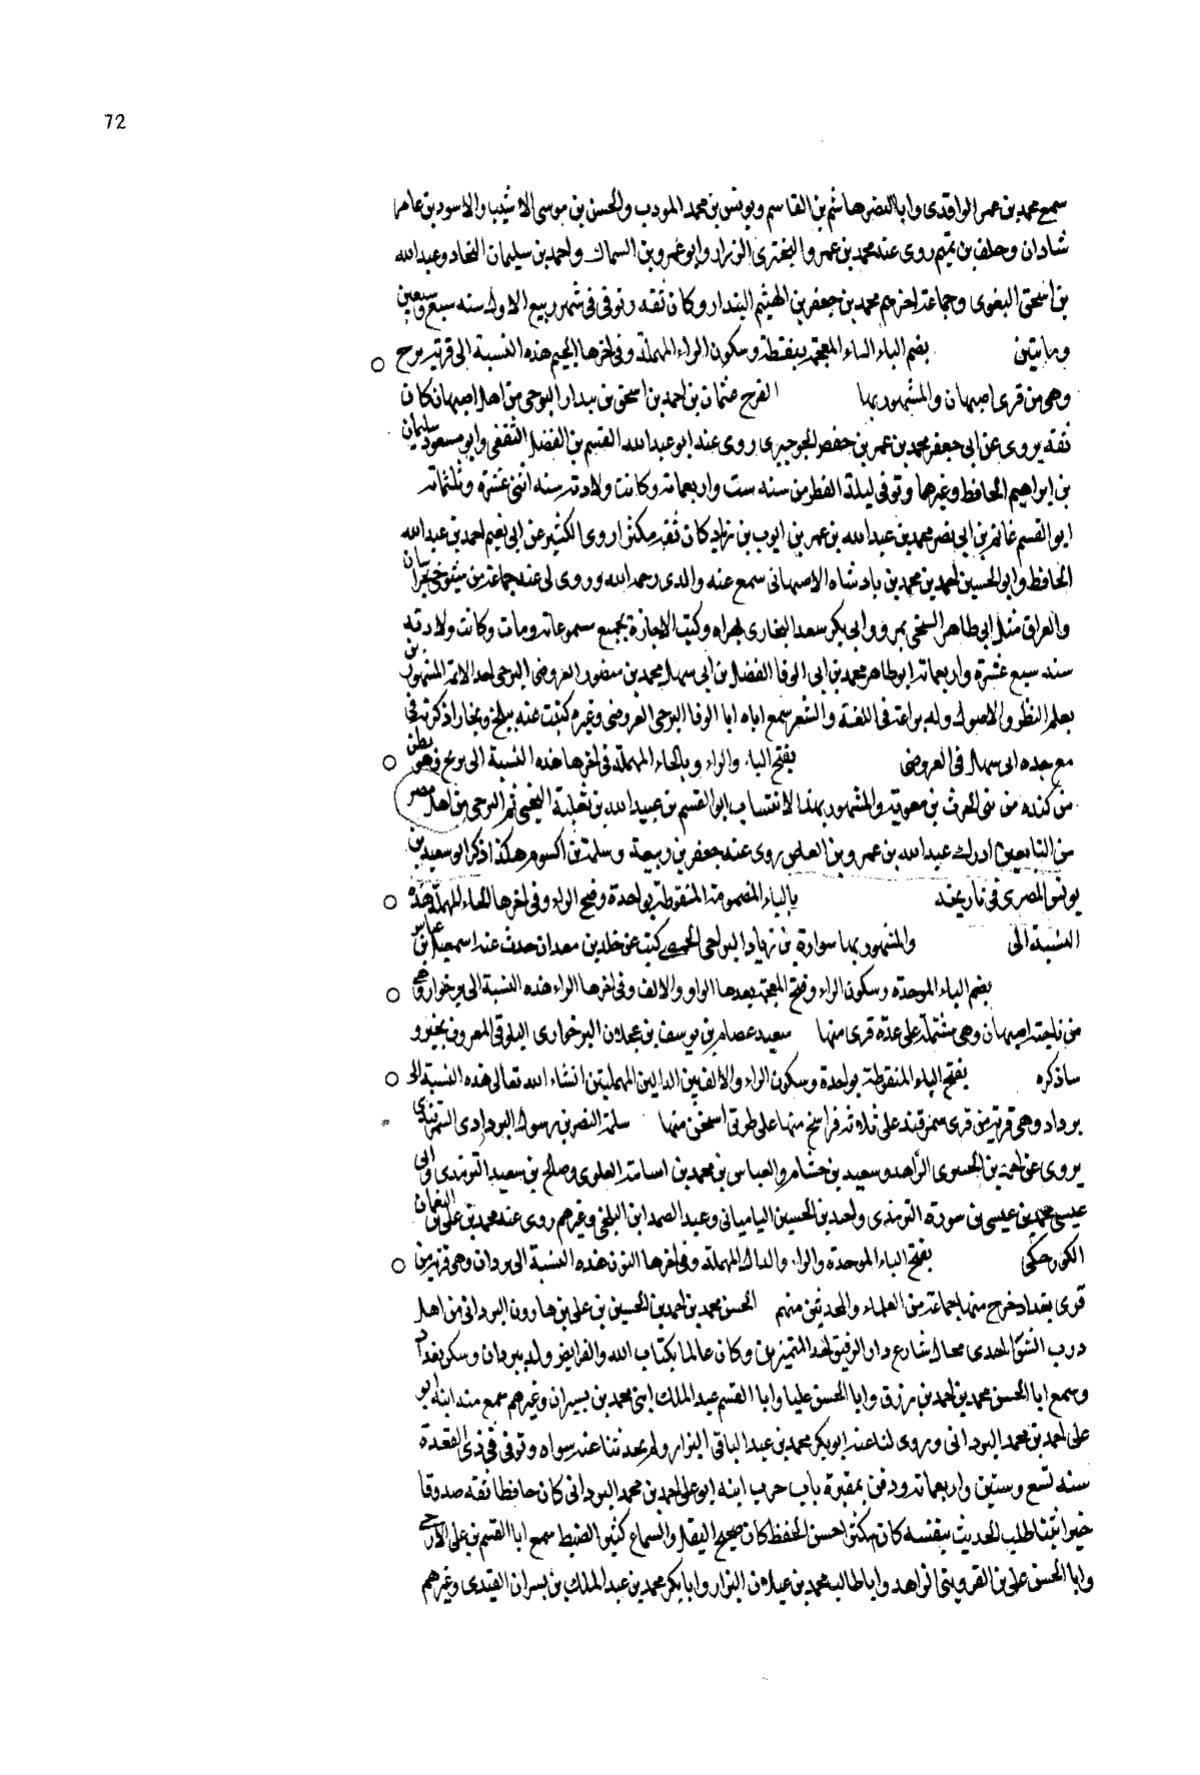 72
سمع محمد بن عمر الواقدى وابا النضر هاشم بن القاسم ويونس بن محمد المودب والحسن بن موسى الاشيب والاسود بن عامر
شادان وخلف بن تميم روى عنه محمد بن عمرو البخترى الرزاز وابو عمرو بن السماك واحمد بن سليمان النجاد وعبد الله
بن اسحق البغوى وجماعة اخرهم محمد بن جعفر بن الهيثم البندار وكان ثقه وتوفى فى شهر ربيع الاول سنه سبع وسبعين
ومايتين بضم الباء المعجمة بنقطة وسكون الراء المهملة وفى اخرها الجيم هذه النسبة الى قرية برج
وهى من قرى اصبهان والمشهور بها الفرج عثمان بن احمد بن اسحق بن بندار البرجى من اهل اصبهان كان
ثقه يروى عن ابى جعفر محمد بن عمر بن حفص الجوجيرى روى عنه ابو عبد الله القسم بن الفضل الثقفى وابو مسعود سليمان
بن ابراهيم الحافظ وغيرها وتوفى ليلة الفطر من سنه ست واربعماية وكانت ولادته سنه اثنى عشرة وثلثماية
ابو القسم غانم بن ابى نصر محمد بن عبد الله بن عمر بن ايوب بن زياد كان ثقه مكثرا روى الكثير عن ابى نعيم احمد بن عبد الله
الحافظ وابو الحسين احمد بن محمد بن بادشاه الاصبهانى سمع عنه والدى رحمه الله وروى لى عنه جماعة من شيوخ خراسان
والعراق مثل ابى طاهر السنجى بمرو وابى بكر سعد البخارى بهراه وكتب الاجازة بجميع مسموعاته ومات وكانت ولادته
سنه سبع عشرة واربعماية ابو طاهر محمد بن ابى الوفا الفضل بن ابى سهل محمد بن منصور العروضى البرجى احد الائمة المشهورين
بعلم النظر والاصول وله براعة فى اللغة والشعر سمع اباه ابا الوفا البرجى العروضى وغيره كتبت عنه ببلخ وبخارا ذكرته فى
مع جده ابى سهل فى العروضى بفتح الباء والراء وبالحاء المهملة فى اخرها هذه النسبة الى بريح وهو بطن
من كنده من بنى الحرث بن معوية والمشهور بهذا الانتساب ابو القسم بن عبيد الله بن ثعلبة التجيبى ثم البرحى من اهل مصر
من التابعين ادرك عبد الله بن عمرو بن العاص روى عنه جعفر بن ربيعة وسلمة بن اكسوم هكذا ذكر ابو سعيد بن
يونس المصرى فى تاريخه بالباء المضمومة المنقوطة بواحدة وفتح الراء وفى اخرها الحاء المهملة هذه
النسبة الى والمشهور بها سوارة بن زياد البراحى الحمصى كتب عن خلد بن معدان حدث عنه اسمعيل بن عياش
بضم الباء الموحدة وسكون الراء وفتح المعجمة بعدها الواو والالف وفى اخرها الراء هذه النسبة الى برخوار وهى
من ناحية اصبهان وهى مشتملة على عدة قرى منها سعيد عصام بن يوسف بن عجلان البرخوارى البلوقى المعروف بجبر و
ساذكره بفتح الباء المنقوطة بواحدة وسكون الراء والالف بين الدالين المهملتين انشاء الله تعالى هذه النسبة الى
برداد وهى قرية من قرى سمرقند على ثلاثة فراسخ منها على طرق اسمعن منها سلمة النضر بن رسول البردادى السمرقندى
يروى عن احمد بن الحسوى الزاهد وسعيد بن هشام والعباس بن محمد بن اسامة العلوى وصالح بن سعيد الترمذى وابى
عيسى محمد بن عيسى بن سورة الترمذى واحمد بن الحسين اليامياني وعبد الصمد ابن البلخى وغيرهم روى عنه محمد بن على بن النعمان
الكورجكى بفتح الباء الموحدة والراء والدال المهملة وفى اخرها النون هذه النسبة الى بردان وهى قرية من
قرى بغداد خرج منها جماعة من العلماء والمحدثين منهم الحسن محمد بن احمد بن الحسين بن على بن هارون البردانى من اهل
درب الشوا احدى محال شارع دار الرقيق احد المتميزين وكان عالما بكتاب الله والفرايض ولد ببردان وسكن بغداد
وسمع ابا الحسن محمد بن احمد بن رزق وابا الحسن عليا وابا القسم عبد الملك ابنى محمد بن بسران وغيرهم سمع منه ابنه ابو
على احمد بن محمد البردانى وروى لنا عنه ابو بكر محمد بن عبد الباقى البزار ولم يحدثنا عنه سواه وتوفى فى ذى القعدة
سنه تسع وستين واربعماية ودفن بمقبرة باب حرب ابنه ابو على احمد بن محمد البردانى كان حافظا ثقه صدوقا
خيرا ثبتا طلب الحديث بنفسه كان مكثرا حسن الحفظ كان صحيح النقل والسماع كثير الضبط سمع ابا القسم بن على الازجى
وابا الحسن على بن القزوينى الزاهد وابا طالب محمد بن غيلان البزار وابا بكر محمد بن عبد الملك بن بسران القيدى وغيرهم